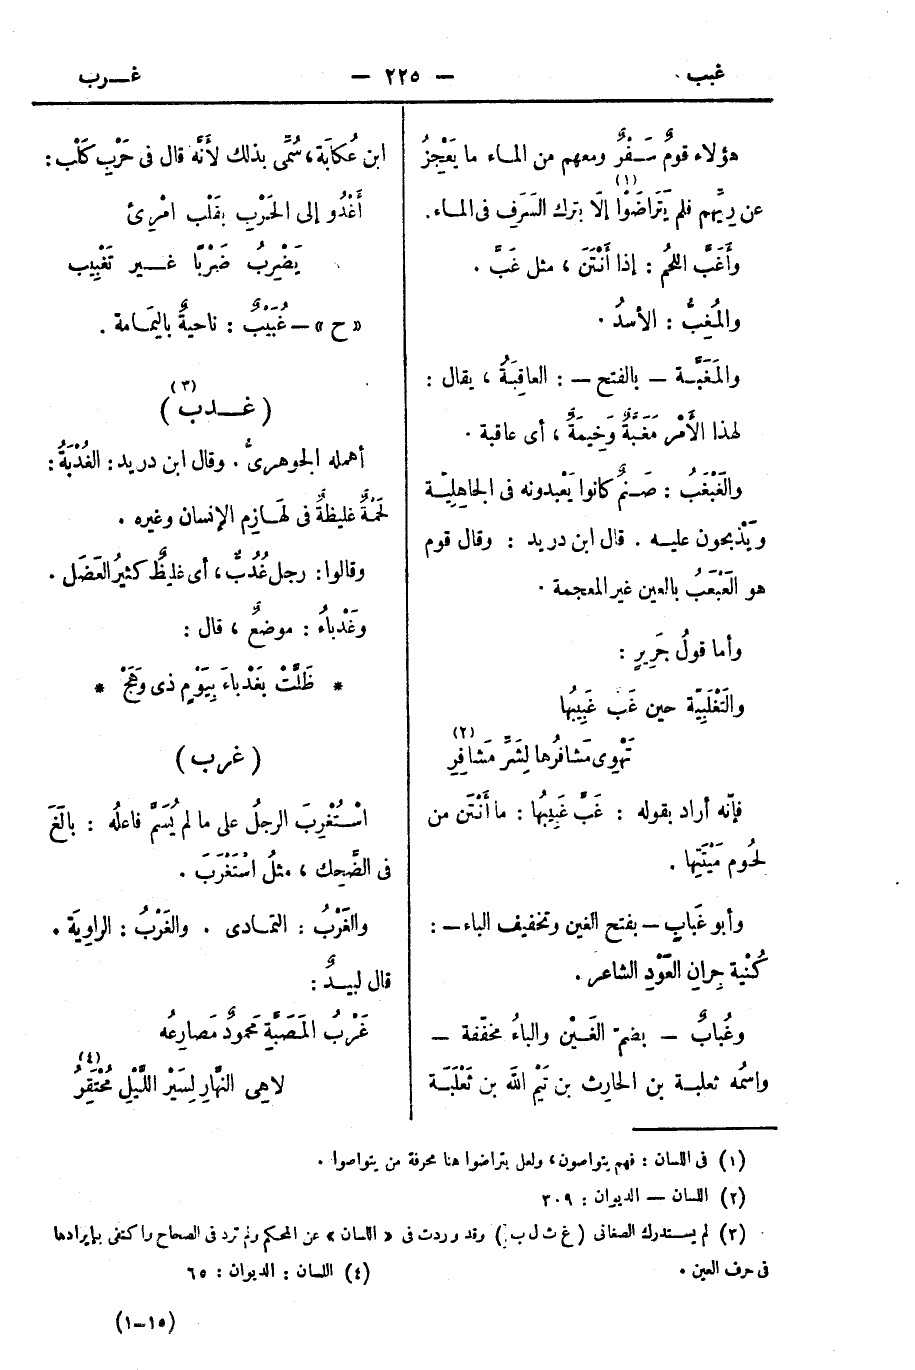 غبب — ٢٢٥ — غـرب
هؤلاء قومٌ سَفْرٌ ومعهم من الماء ما يَعْجِزُ
عن رِيِّهم فلم يَتَراضَوْا (١) إلّا بترك السَرَفِ فى الماء.
وأَغَبَّ اللحُم : إذا أَنْتَنَ ، مثل غَبَّ .
والمُغِبُّ : الأسدُ .
والمَغَبَّة – بالفتح – : العاقِبَةُ ، يقال :
لهذا الأَمْر مَغَبَّةٌ وَخِيمَةٌ ، أى عاقبة .
والغَبْغَبُ : صَنَمٌ كانوا يَعْبدونه فى الجاهليّة
ويَذْبحون عليه . قال ابن دريد : وقال قوم
هو العَبْعَبُ بالعين غير المعجمة .
وأما قولُ جَرِيرٍ :
والتَّغْلَبِيّة حين غَب غَبِيبُها
تَهْوِى مَشافرُها لِشَرِّ مَشافِرِ (٢)
فإنّه أراد بقوله : غَبَّ غَبِيبُها : ما أَنْتَن من
لحُوم مَيْتَتِها .
وأبو غَبابٍ – بفتح الغين وتخفيف الباء – :
كُنْية جِرانِ العَوْدِ الشاعر .
وغُبابٌ – بضم الغَيْن والباءُ مخفّفة –
واسمُه ثعلبة بن الحارِث بن تَيْم الله بن ثَعْلَبَة
ابن عُكابَة ، سُمِّى بذلك لأَنَّه قال فى حَرْبِ كَلْب :
أَغْدُو إلى الحَرْبِ بقَلْب امْرِئ
يَضْرِبُ ضَرْبًا غـير تَغْبِيب
« ح » – غُبَيْبٌ : ناحيةٌ باليَمامة .
( غـدب ) (٣)
أهمله الجوهرىُّ . وقال ابن دريد : الغُدْبَةُ :
لَحْمَةٌ غليظةٌ فى لَهَازِم الإنسان وغيره .
وقالوا : رجل غُدُبٌّ ، أى غليظٌ كثيرُ العَضَل .
وغَدْباءُ : موضعٌ ، قال :
* ظَلَّتْ بغَدْباءَ بِيَوْمٍ ذى وَهَجْ *
( غرب )
اسْتُغْرِبَ الرجلُ على ما لم يُسَمَّ فاعلُه : بالَغَ
فى الضَّحِك ، مثلُ اسْتَغْرَبَ .
والغَرْبُ : التمادى . والغَرْبُ : الراوِيَة .
قال لبيدٌ :
غَرْبُ المَصَبَّةِ مَحمودٌ مَصارِعُه
لاهِى النَّهارِ لسَيْرِ اللَّيْلِ مُحْتَقِرُ (٤)
(١) فى اللسان : فهم يتواصون ، ولعل يتراضوا هنا محرفة من يتواصوا .
(٢) اللسان – الديوان : ٣٠٩
(٣) لم يستدرك الصغانى ( غ ث ل ب ) وقد وردت فى « اللسان » عن المحكم ولم ترد فى الصحاح واكتفى بإيرادها
فى حرف العين . (٤) اللسان : الديوان : ٦٥
(١٥–١)